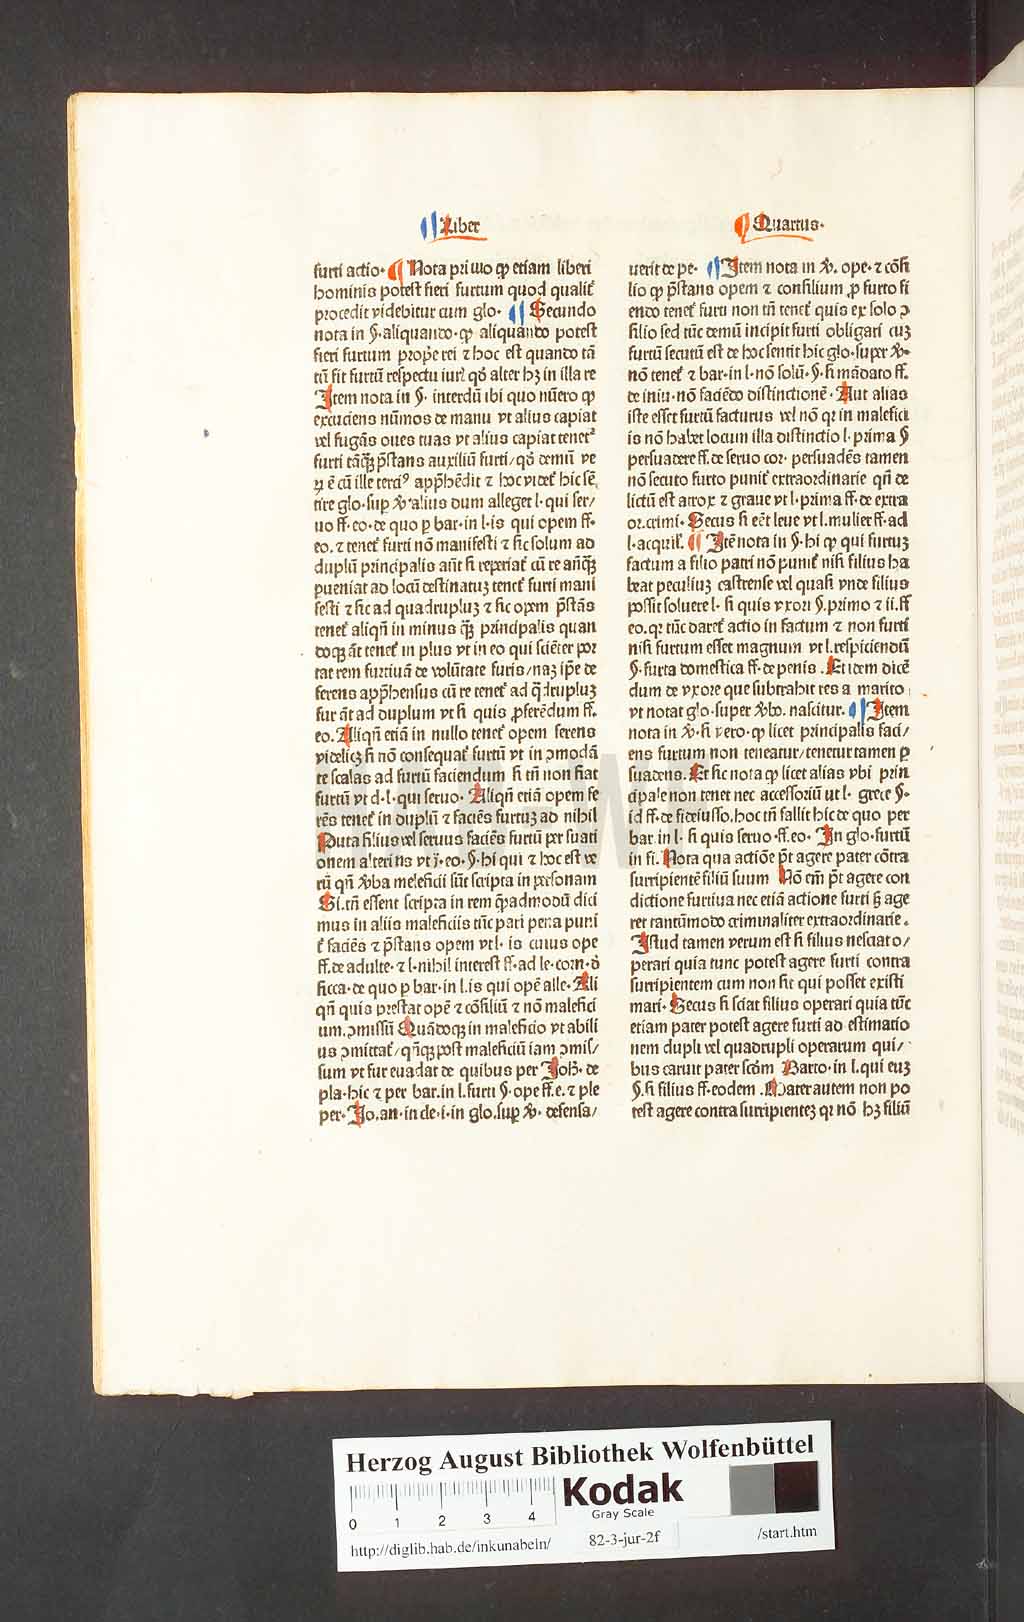 Liber
Quartus.
furti actio. Nota primo ꝙ etiam liberi
hominis potest fieri furtum quod qualit᷑
procedit videbitur cum glo. Secundo
nota in §. aliquando. ꝙ aliquando potest
fieri furtum prop̄e rei ⁊ hoc est quando tā
tū fit furtū respectu iurꝭ qđ alter hꝫ in illa re
Item nota in §. interdū ibi quo nūero ꝙ
excuciens nūmos de manu vt alius capiat
vel fugās oues tuas vt alius capiat tenet᷑
furti tāꝙ̄ p̄stans auxiliū furti/ qđ demū ve
ꝝ ē cū ille terciꝰ app̄hēdit ⁊ hoc videt᷑ hic sē
tire glo. suꝑ ꝟ alius dum alleget l. qui ser/
uo ff. eo. de quo ꝑ bar. in l. is qui opem ff.
eo. ⁊ tenet᷑ furti nō manifesti ⁊ sic solum ad
duplū principalis aūt si reperiat᷑ cū re anꝙ̄
pueniat ad locū destinatuꝫ tenet᷑ furti mani
festi ⁊ sic ad quadrupluꝫ ⁊ sic opem p̄stās
tenet᷑ aliqn̄ in minus ꝙ̄ principalis quan
doqꝫ āt tenet᷑ in plus vt in eo qui sciēter por
tat rem furtiuā de volūtate furis/ naꝫ ip̄e de
ferens app̄hensus cū re tenet᷑ ad q̄drupluꝫ
fur āt ad duplum vt si quis ꝓferēdum ff.
eo. Aliqn̄ etiā in nullo tenet᷑ opem ferens
videlicꝫ si nō consequat᷑ furtū vt in ꝯmodā
te scalas ad furtū faciendum si tn̄ non fiat
furtū vt d. l. qui seruo. Aliqn̄ etiā opem fe
rēs tenet᷑ in duplū ⁊ faciēs furtuꝫ ad nihil
Puta filius vel seruus faciēs furtū per suasi
onem alterius vt j. eo. §. hi qui ⁊ hoc est ve
rū qn̄ ꝟba meleficii sūt scripta in personam
Si. tn̄ essent scripta in rem q̄admodū dici
mus in aliis maleficiis tūc pari pena puni
t᷑ faciēs ⁊ p̄stans opem vt l. is cuius ope
ff. de adulte. ⁊ l. nihil interest ff. ad le. corn. đ
sicca. de quo ꝑ bar. in l. is qui opē alle. Ali
qn̄ quis prestat opē ⁊ cōsiliū ⁊ nō malefici
um ꝯmissū Quādoqꝫ in maleficio vt abili
us ꝯmittat᷑/ qn̄qꝫ post maleficiū iam ꝯmis/
sum vt fur euadat de quibus per Joh̄. de
pla. hic ⁊ per bar. in l. furti §. ope ff. e. ⁊ ple
per. Jo. an. in de. i. in glo. suꝑ ꝟ. defensa/
uerit de pe. Item nota in ꝟ. ope. ⁊ cōsi
lio ꝙ p̄stans opem ⁊ consilium ꝓ furto fi
endo tenet᷑ furti non tn̄ tenet᷑ quis ex solo ꝯ
silio sed tūc demū incipit furti obligari cuꝫ
furtū secutū est de hoc sentit hic glo. super ꝟ.
nō tenet᷑ ⁊ bar. in l. nō solū. §. si mādato ff.
de iniu. nō faciēdo distinctionē. Aut alias
iste esset furtū facturus vel nō qꝛ in malefici
is nō habet locum illa distinctio l. prima §
persuadere ff. de seruo cor. persuadēs tamen
nō secuto furto punit᷑ extraordinarie qn̄ de
lictū est atrox ⁊ graue vt l. prima ff. de extra
or. crimi. Secus si eēt leue vt l. mulier ff. ad
l. acquil᷑. Itē nota in §. hi ꝙ qui furtuꝫ
factum a filio patri nō punit᷑ nisi filius ha
beat peculiuꝫ castrense vel quasi vnde filius
possit soluere l. si quis vxori §. primo ⁊ ii. ff
eo. qꝛ tūc daret᷑ actio in factum ⁊ non furti
nisi furtum esset magnum vt l. respiciendū
§. furta domestica ff. de penis. Et idem dicē
dum de vxore que subtrahit res a marito
vt notat glo. super ꝟbo. nascitur. Item
nota in ꝟ. si vero. ꝙ licet principalis faci/
ens furtum non teneatur/ tenetur tamen ꝑ
suadens. Et sic nota ꝙ licet alias vbi prin
cipale non tenet nec accessoriū ut l. grece §.
id ff. de fideiusso. hoc tn̄ fallit hic de quo per
bar. in l. si quis seruo. ff. eo. In glo. furtū
in fi. Nota qua actiōe p̄t agere pater cōtra
surripientē filiū suum Nō em̄ p̄t agere con
dictione furtiua nec etiā actione furti ꝫ age
ret tantūmodo criminaliter extraordinarie.
Istud tamen verum est si filius nesciat o/
perari quia tunc potest agere furti contra
surripientem cum non sic qui posset existi
mari. Secus si sciat filius operari quia tūc
etiam pater potest agere furti ad estimatio
nem dupli vel quadrupli operarum qui/
bus caruit pater scōm Barto. in l. qui euꝫ
§. si filius ff. eodem. Mater autem non po
test agere contra surripienteꝫ qꝛ nō hꝫ filiū
HAB-WF
Herzog August Bibliothek Wolfenbüttel
Kodak
Gray Scale
0 1 2 3 4
http://diglib.hab.de/inkunabeln/
82-3-jur-2f
/start.htm